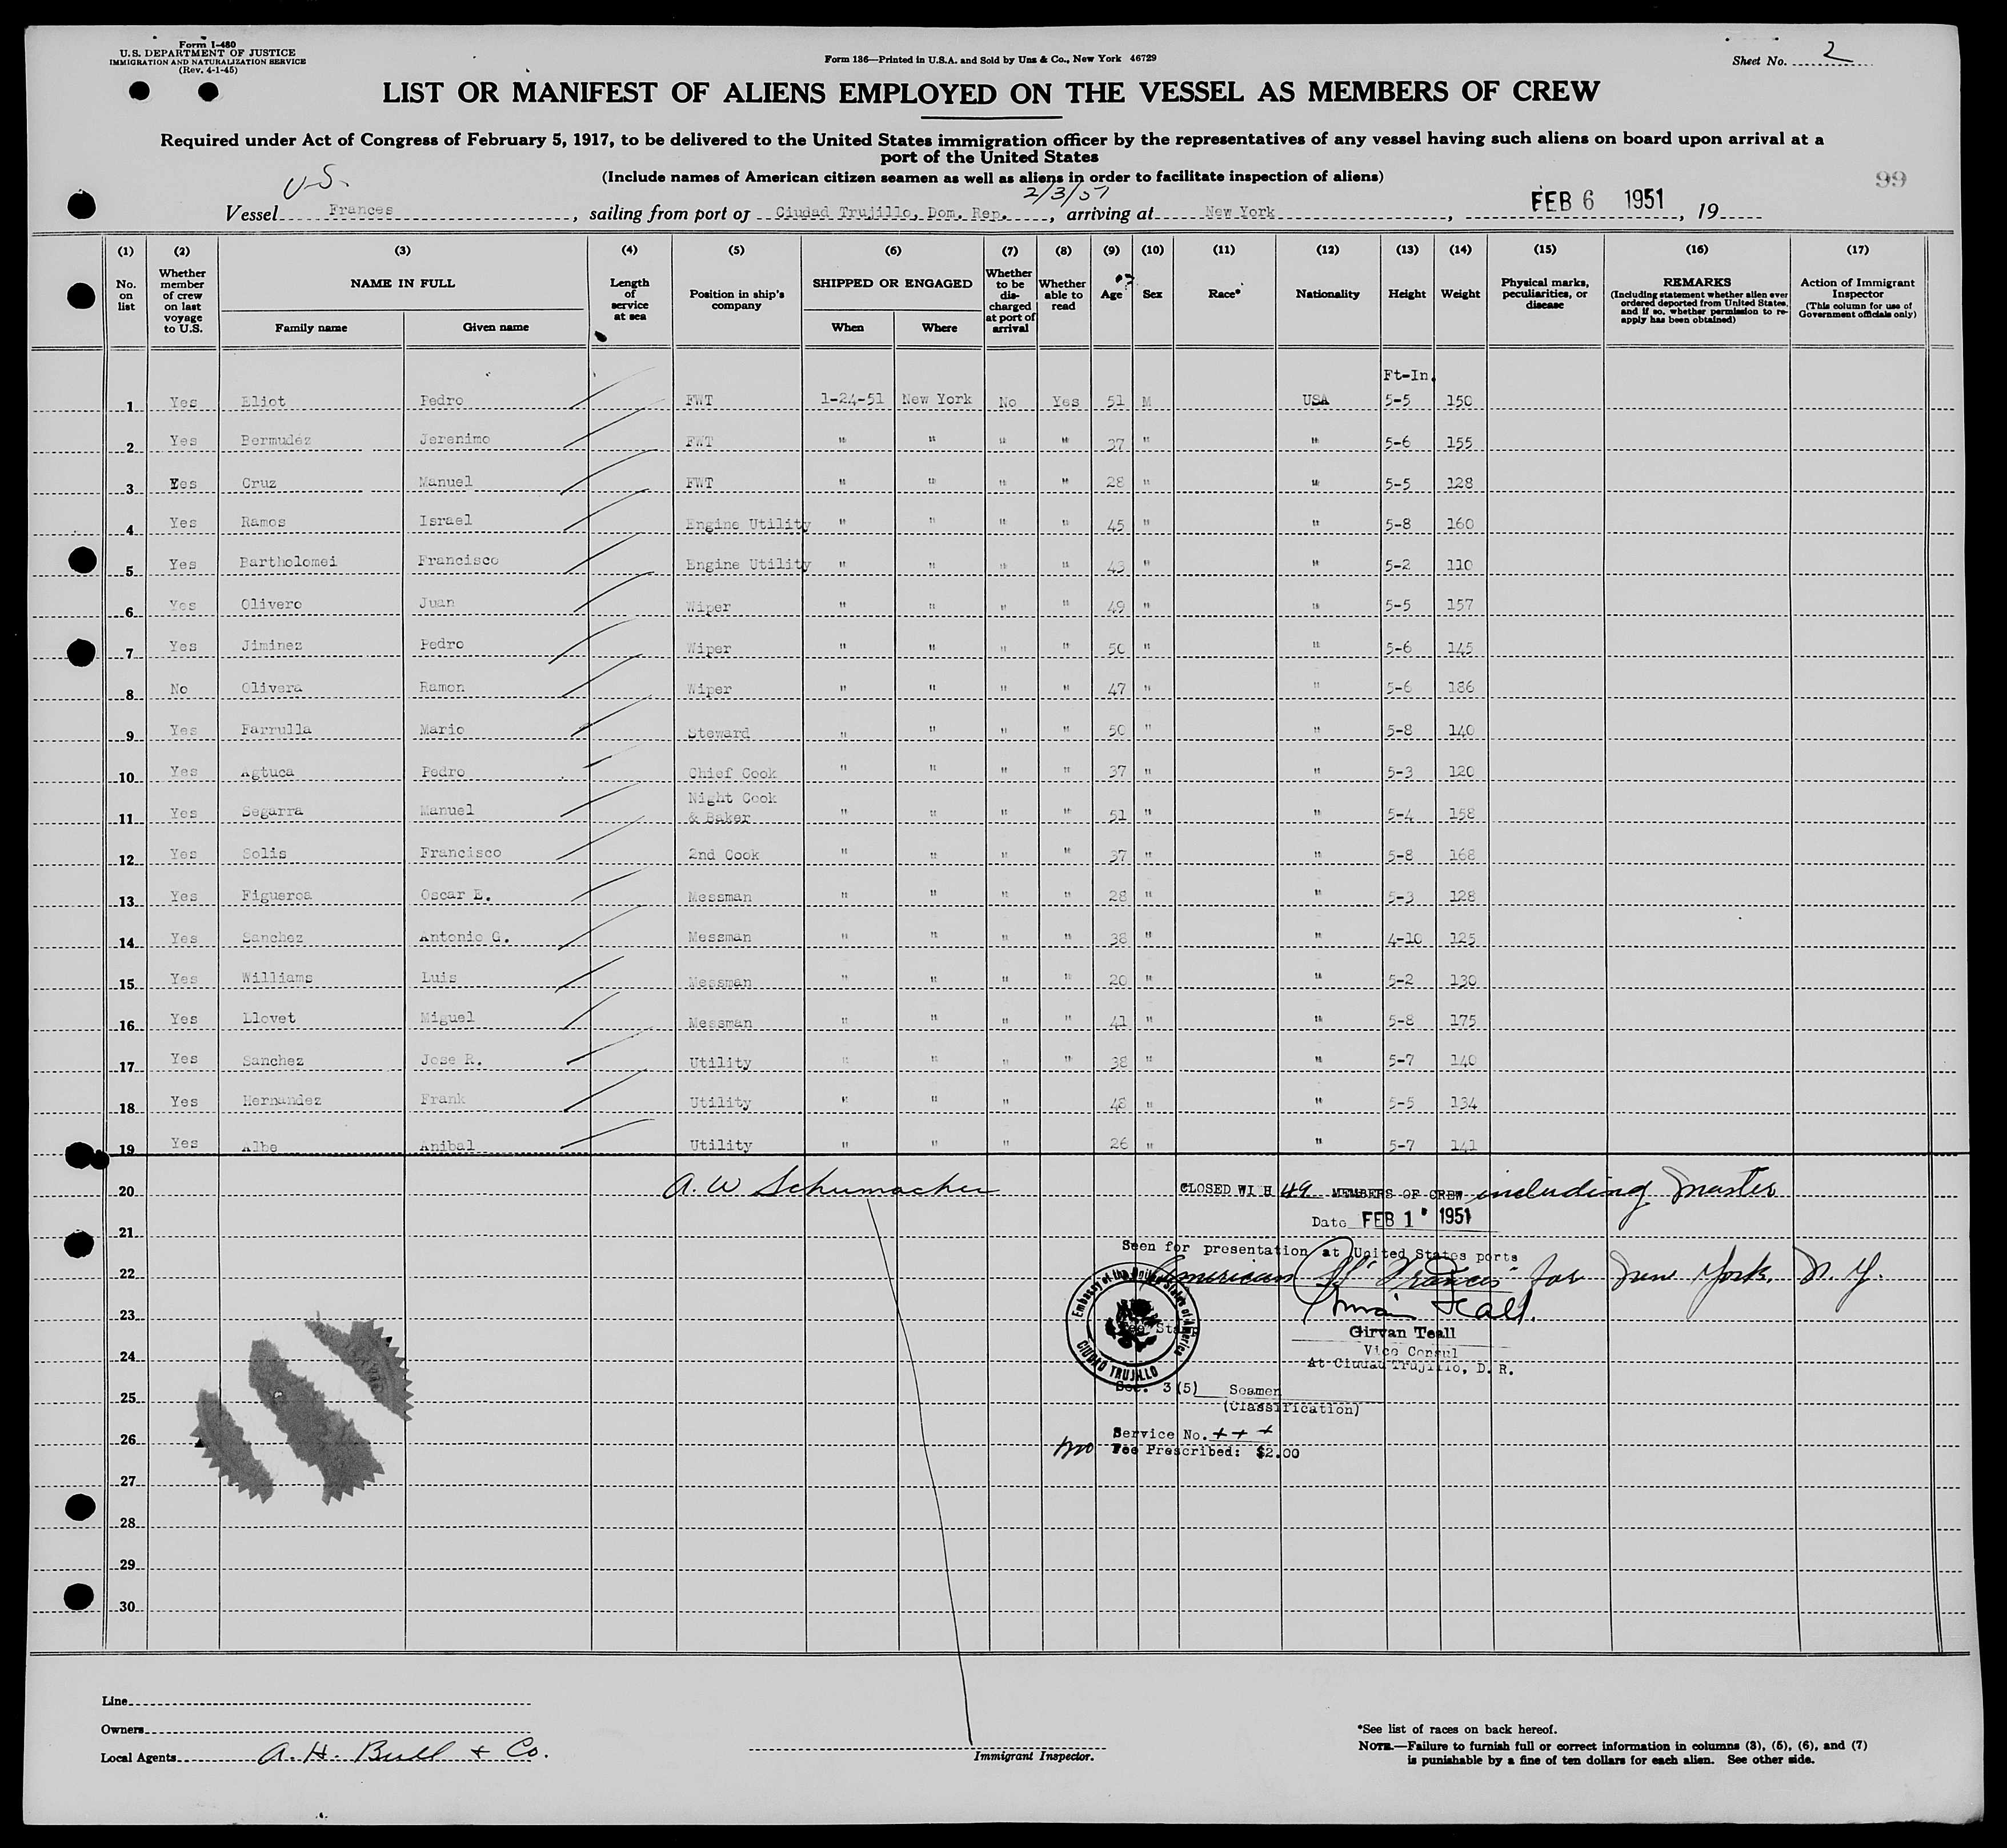 Form I-480
U.S. DEPARTMENT OF JUSTICE
IMMIGRATION AND NATURALIZATION SERVICE
(Rev. 4-1-45)
Form 136—Printed in U.S.A. and Sold by Uns & Co., New York 46729
Sheet No. 2
LIST OR MANIFEST OF ALIENS EMPLOYED ON THE VESSEL AS MEMBERS OF CREW
Required under Act of Congress of February 5, 1917, to be delivered to the United States immigration officer by the representatives of any vessel having such aliens on board upon arrival at a
port of the United States
(Include names of American citizen seamen as well as aliens in order to facilitate inspection of aliens)
99
U.S. 2/3/51
Vessel Frances, sailing from port of Ciudad Trujillo, Dom. Rep., arriving at New York, FEB 6 1951, 19
(1) (2) (3) (4) (5) (6) (7) (8) (9) (10) (11) (12) (13) (14) (15) (16) (17)
No. on list
Whether member of crew on last voyage to U.S.
NAME IN FULL
Family name Given name
Length of service at sea
Position in ship's company
SHIPPED OR ENGAGED
When Where
Whether to be discharged at port of arrival
Whether able to read
Age
Sex
Race*
Nationality
Height
Weight
Physical marks, peculiarities, or disease
REMARKS
(Including statement whether alien ever ordered deported from United States, and if so, whether permission to re-apply has been obtained)
Action of Immigrant Inspector
(This column for use of Government officials only)
Ft-In.
1 Yes Eliot Pedro FWT 1-24-51 New York No Yes 51 M USA 5-5 150
2 Yes Bermudez Jerenimo FWT " " " " 37 " " 5-6 155
3 Yes Cruz Manuel FWT " " " " 28 " " 5-5 128
4 Yes Ramos Israel Engine Utility " " " " 45 " " 5-8 160
5 Yes Bartholomei Francisco Engine Utility " " " " 43 " " 5-2 110
6 Yes Olivero Juan Wiper " " " " 49 " " 5-5 157
7 Yes Jiminez Pedro Wiper " " " " 50 " " 5-6 145
8 No Olivera Ramon Wiper " " " " 47 " " 5-6 186
9 Yes Farrulla Mario Steward " " " " 50 " " 5-8 140
10 Yes Agtuca Pedro Chief Cook " " " " 37 " " 5-3 120
11 Yes Segarra Manuel Night Cook & Baker " " " " 51 " " 5-4 158
12 Yes Solis Francisco 2nd Cook " " " " 37 " " 5-8 168
13 Yes Figueroa Oscar E. Messman " " " " 28 " " 5-3 128
14 Yes Sanchez Antonio G. Messman " " " " 38 " " 4-10 125
15 Yes Williams Luis Messman " " " " 20 " " 5-2 130
16 Yes Llovet Miguel Messman " " " " 41 " " 5-8 175
17 Yes Sanchez Jose R. Utility " " " " 38 " " 5-7 140
18 Yes Hernandez Frank Utility " " " 48 " " 5-5 134
19 Yes Albe Anibal Utility " " " 26 " " 5-7 141
20 A. W Schumacher CLOSED WI H 49 MEMBERS OF CREW including Master
21 Date FEB 1 1951
Seen for presentation at United States ports
22 American SS "Frances" for New York, N. Y.
23 Girvan Teall
Vice Consul
24 At Ciudad Trujillo, D. R.
Embassy of the United States of America
CIUDAD TRUJILLO
Fee Stamp
25 Sec. 3(5) Seamen
(Classification)
26 Service No. + + +
no Fee Prescribed: $2.00
27
28
29
30
Line
Owners
Local Agents A. H. Bull & Co.
Immigrant Inspector.
*See list of races on back hereof.
NOTE.—Failure to furnish full or correct information in columns (3), (5), (6), and (7)
is punishable by a fine of ten dollars for each alien. See other side.